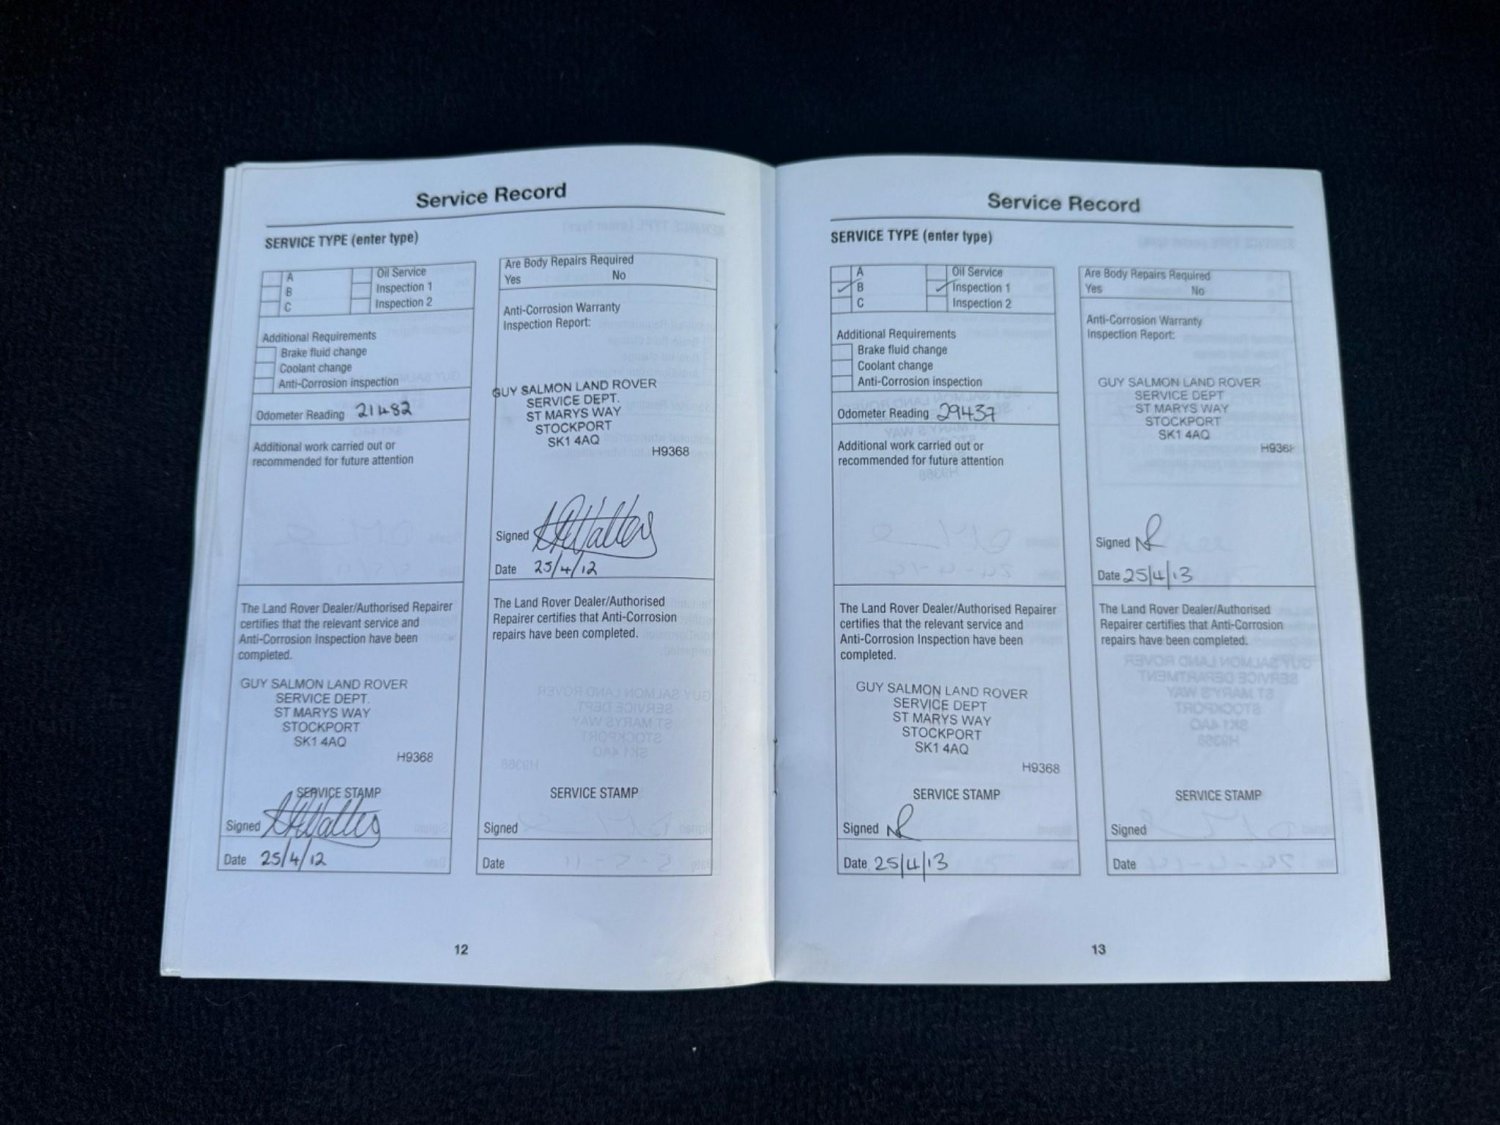 Service Record
SERVICE TYPE (enter type)
A
B
C
Oil Service
Inspection 1
Inspection 2
Additional Requirements
Brake fluid change
Coolant change
Anti-Corrosion inspection
Odometer Reading 21482
Additional work carried out or
recommended for future attention
The Land Rover Dealer/Authorised Repairer
certifies that the relevant service and
Anti-Corrosion Inspection have been
completed.
GUY SALMON LAND ROVER
SERVICE DEPT.
ST MARYS WAY
STOCKPORT
SK1 4AQ
H9368
SERVICE STAMP
Signed
Date 25/4/12
Are Body Repairs Required
Yes No
Anti-Corrosion Warranty
Inspection Report:
GUY SALMON LAND ROVER
SERVICE DEPT.
ST MARYS WAY
STOCKPORT
SK1 4AQ
H9368
Signed
Date 25/4/12
The Land Rover Dealer/Authorised
Repairer certifies that Anti-Corrosion
repairs have been completed.
SERVICE STAMP
Signed
Date
12
Service Record
SERVICE TYPE (enter type)
A
B
C
Oil Service
Inspection 1
Inspection 2
Additional Requirements
Brake fluid change
Coolant change
Anti-Corrosion inspection
Odometer Reading 29437
Additional work carried out or
recommended for future attention
The Land Rover Dealer/Authorised Repairer
certifies that the relevant service and
Anti-Corrosion Inspection have been
completed.
GUY SALMON LAND ROVER
SERVICE DEPT
ST MARYS WAY
STOCKPORT
SK1 4AQ
H9368
SERVICE STAMP
Signed
Date 25/4/13
Are Body Repairs Required
Yes No
Anti-Corrosion Warranty
Inspection Report:
GUY SALMON LAND ROVER
SERVICE DEPT
ST MARYS WAY
STOCKPORT
SK1 4AQ
H9368
Signed
Date 25/4/13
The Land Rover Dealer/Authorised
Repairer certifies that Anti-Corrosion
repairs have been completed.
SERVICE STAMP
Signed
Date
13